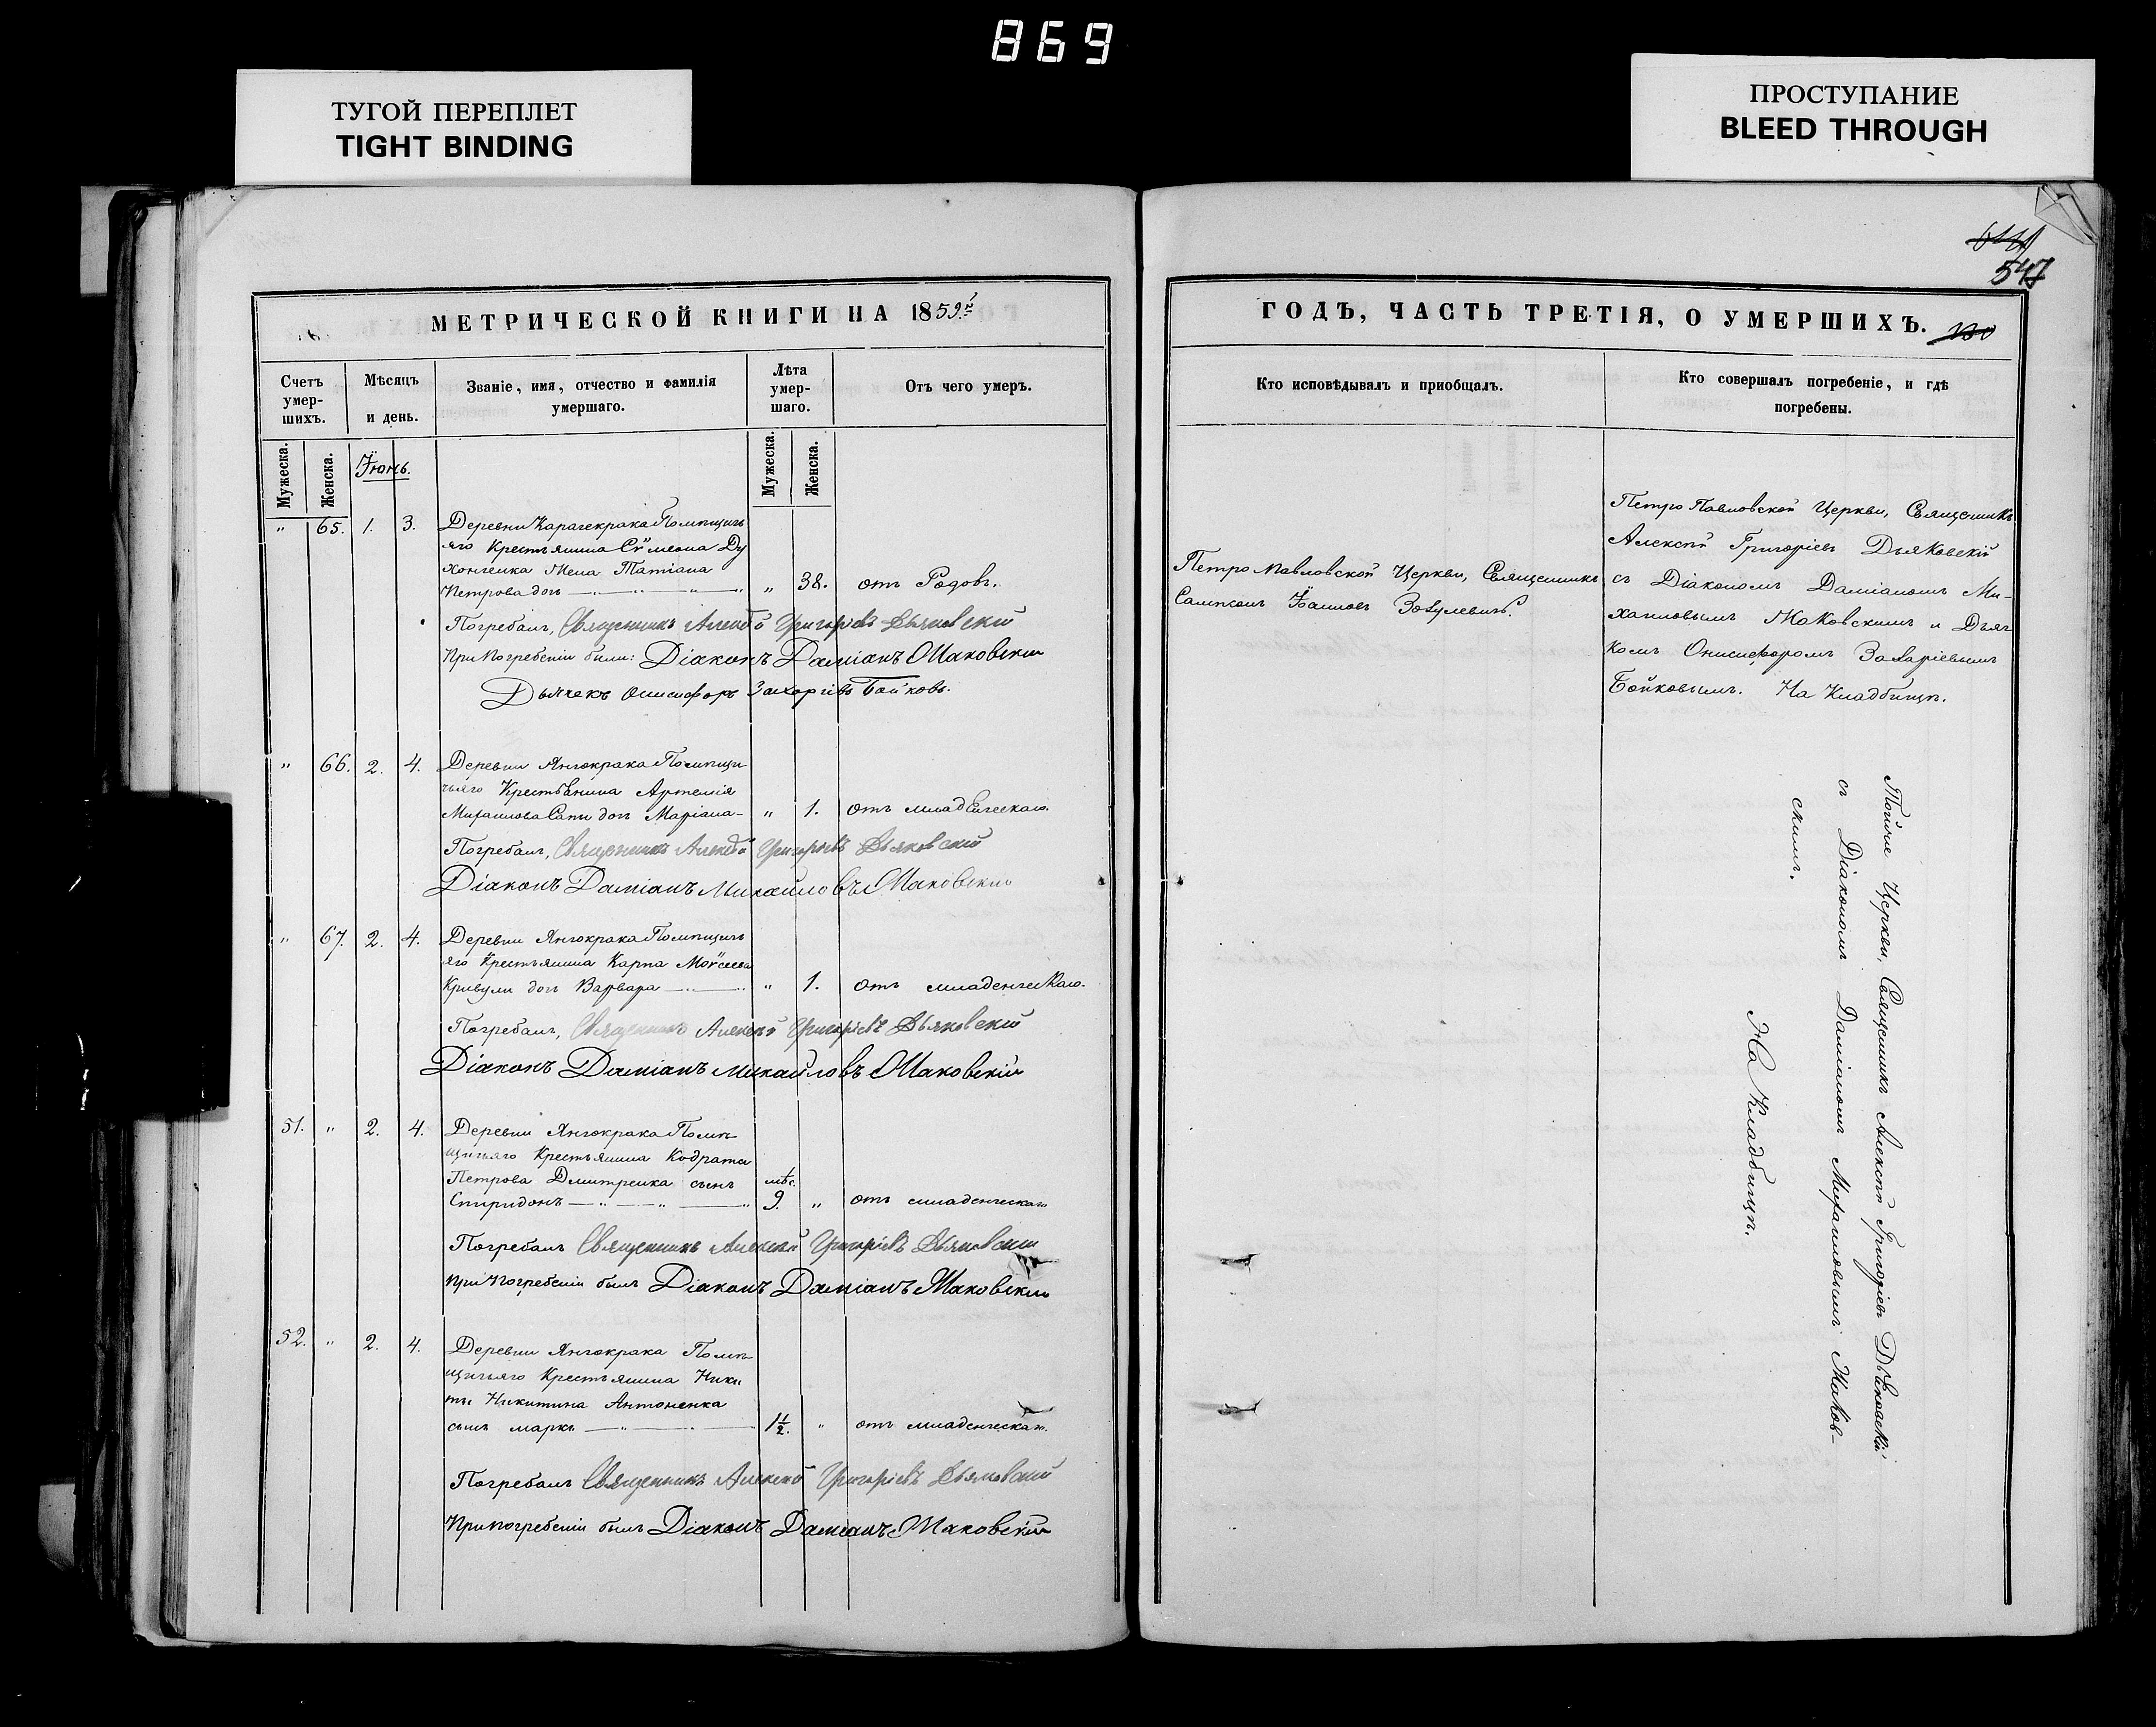 869
ТУГОЙ ПЕРЕПЛЕТ
TIGHT BINDING
ПРОСТУПАНИЕ
BLEED THROUGH
547
МЕТРИЧЕСКОЙ КНИГИ НА 1859.г
Счетъ умер-шихъ.
Мѣсяцъ и день.
Званіе, имя, отчество и фамилія умершаго.
Лѣта умер-шаго.
Отъ чего умеръ.
Мужеска.
Женска.
Іюнь.
Мужеска.
Женска.
" 65. 1. 3. Деревни Карачекрака Помѣщичь
яго Крестьянина Сѵмеона Ду
хонченка Жена Татіана
Петрова дочь " 38. отъ Родовъ.
Погребалъ, Священникъ Алексѣй Григоріевъ Дьяковскій
При Погребеніи были: Діаконъ Даміанъ Маковскій
Дьячекъ Онисифоръ Захаріевъ Бойковъ.
" 66. 2. 4. Деревни Янчокрака Помѣщи
чьяго Крестьянина Артемія
Михаилова дочь Маріана " 1. отъ младенческаго.
Погребалъ, Священникъ Алексѣй Григорьевъ Дьяковскій
Діаконъ Даміанъ Михайловъ Маковскій
" 67. 2. 4. Деревни Янчокрака Помѣщичь
яго Крестьянина Карпа Моѵсеева
Кривули дочь Варвара " 1. отъ младенческаго.
Погребалъ, Священникъ Алексѣй Григоріевъ Дьяковскій
Діаконъ Даміанъ Михайловъ Маковскій
51. " 2. 4. Деревни Янчокрака Помѣ
щичьяго Крестьянина Кодрата
Петрова Дмитренка сынъ мѣс.
Спиридонъ 9. " отъ младенческаго
Погребалъ Священникъ Алексѣй Григоріевъ Дьяковскій
При Погребеніи былъ Діаконъ Даміанъ Маковскій
52. " 2. 4. Деревни Янчокрака Помѣ
щичьяго Крестьянина Ники
ты Никитина Антоненка
сынъ Марко 1½. " отъ младенческаго.
Погребалъ Священникъ Алексѣй Григоріевъ Дьяковскій
При погребеніи былъ Діаконъ Даміанъ Маковскій
ГОДЪ, ЧАСТЬ ТРЕТІЯ, О УМЕРШИХЪ.
130
Кто исповѣдывалъ и приобщалъ.
Кто совершалъ погребеніе, и гдѣ
погребены.
Петро Павловской Церкви, Священникъ
Сампсонъ Іоанновъ Зохулевичъ.
Петро Павловской Церкви, Священникъ
Алексѣй Григоріевъ Дьяковскій
съ Діакономъ Даміаномъ Ми-
хаиловымъ Маковскимъ и Дьяч
комъ Онисифоромъ Захаріевымъ
Бойковымъ. На Кладбищѣ.
Тойже Церкви, Священникъ Алексѣй Григоріевъ Дьяковскій
съ Діакономъ Даміаномъ Михаиловымъ Маков-
скимъ.
На Кладбищѣ.